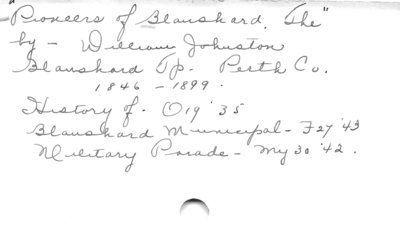 "Pioneers of Blanshard, The"
by - William Johnston
Blanshard Tp. - Perth Co.
1846 - 1899.
History of - O19 '35
Blanshard Municipal - F27 '43
Military Parade - My 30 '42.